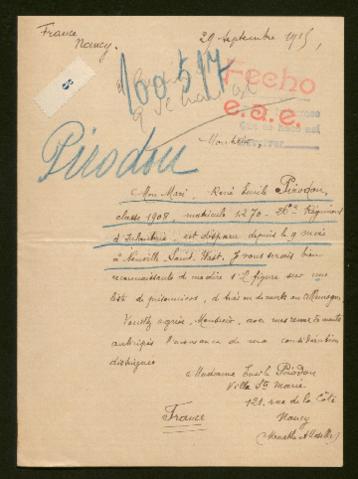 France
Nancy.
29 Septembre 1915,
100517
Fecho
e.a.e.
Pirodon
Monsieur,
Mon Mari, René Emile Pirodon,
classe 1908, matricule 1270 - Régiment
d'Infanterie, est disparu depuis le 9 mai
à Neuville Saint Wast. Je vous serais bien
reconnaissante de me dire s'il figure sur une
liste de prisonniers, en Allemagne,
Veuillez agréer, Monsieur, avec mes remerciements
anticipés l'assurance de ma considération
distinguée
Madame Emile Pirodon
Villa Ste Marie
121, rue de la Côte
Nancy
France
(Meurthe & Moselle)